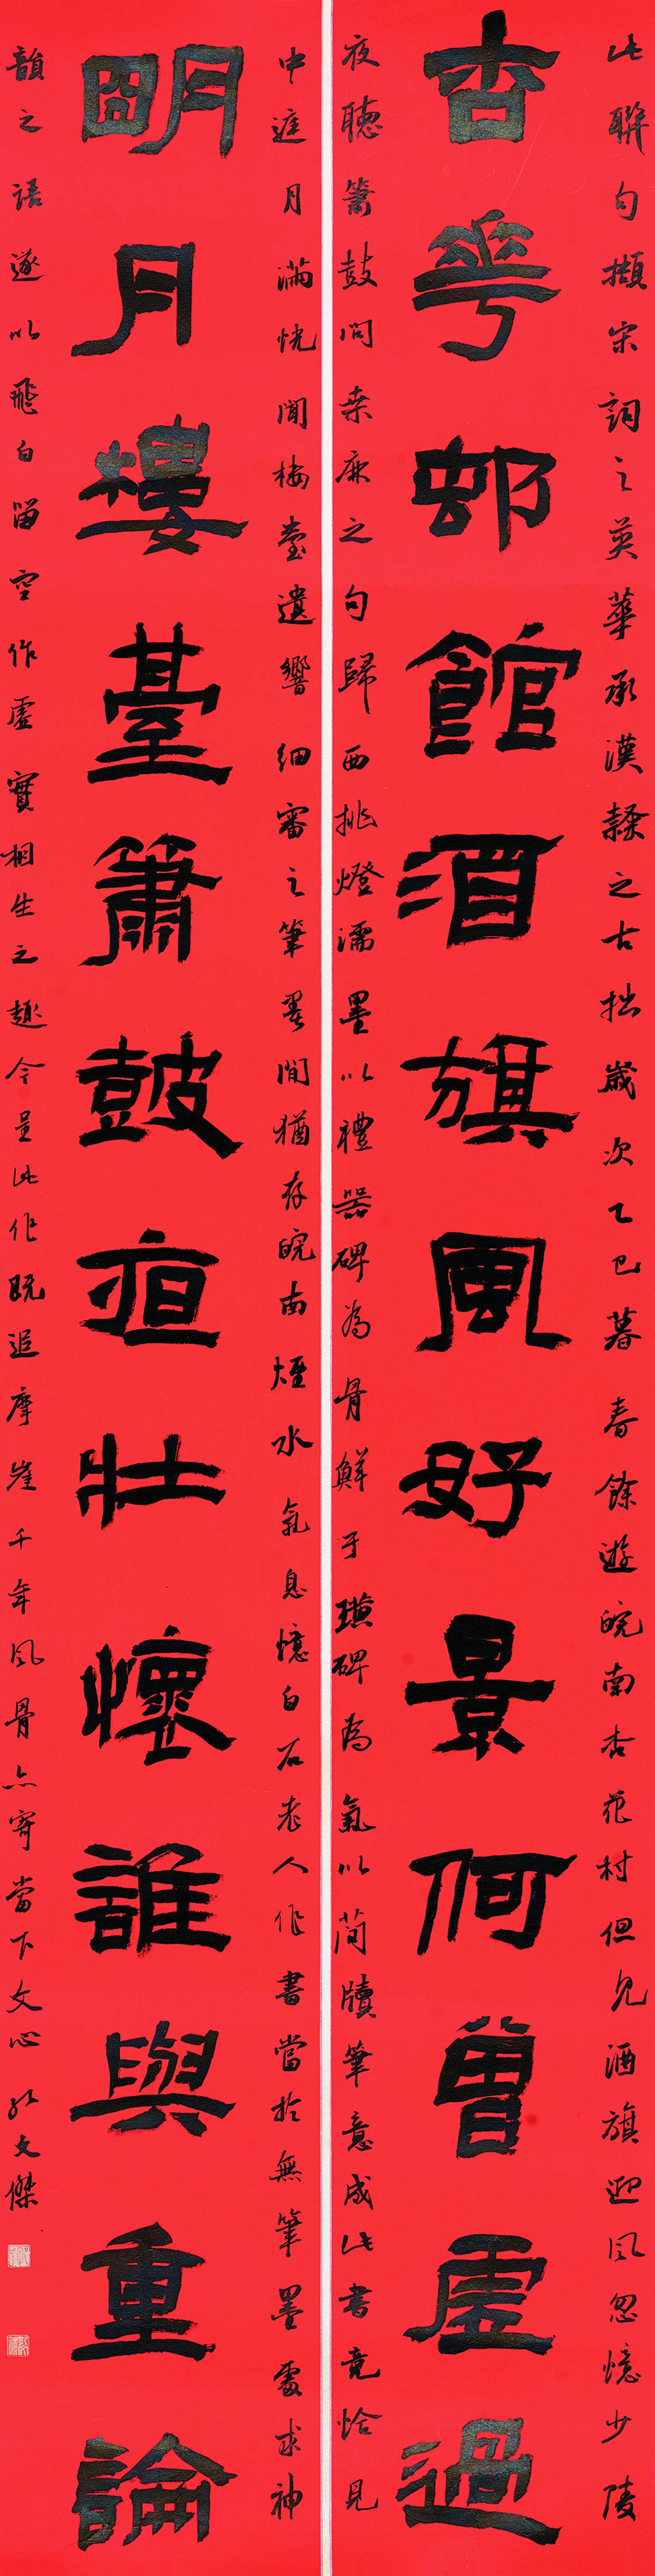 此聯句擷宋詞之英華承漢隸之古拙歲次乙巳暮春餘遊皖南杏花村但見酒旗迎風忽憶少陵
杏華邨館酒旗風好景何曾虛過
夜聽簫鼓問桑麻之句歸西挑燈濡墨以禮器碑為骨鮮于璜碑為氣以簡牘筆意成此書竟恰見
中庭月滿恍聞樓臺遺響細審之筆畫間猶存皖南煙水氣息憶白石老人作書當於無筆墨處求神
明月樓臺簫鼓夜壯懷誰與重論
韻之語遂以飛白留空作虛實相生之趣今呈此作既追摩崖千年風骨亦寄當下文心孔文傑